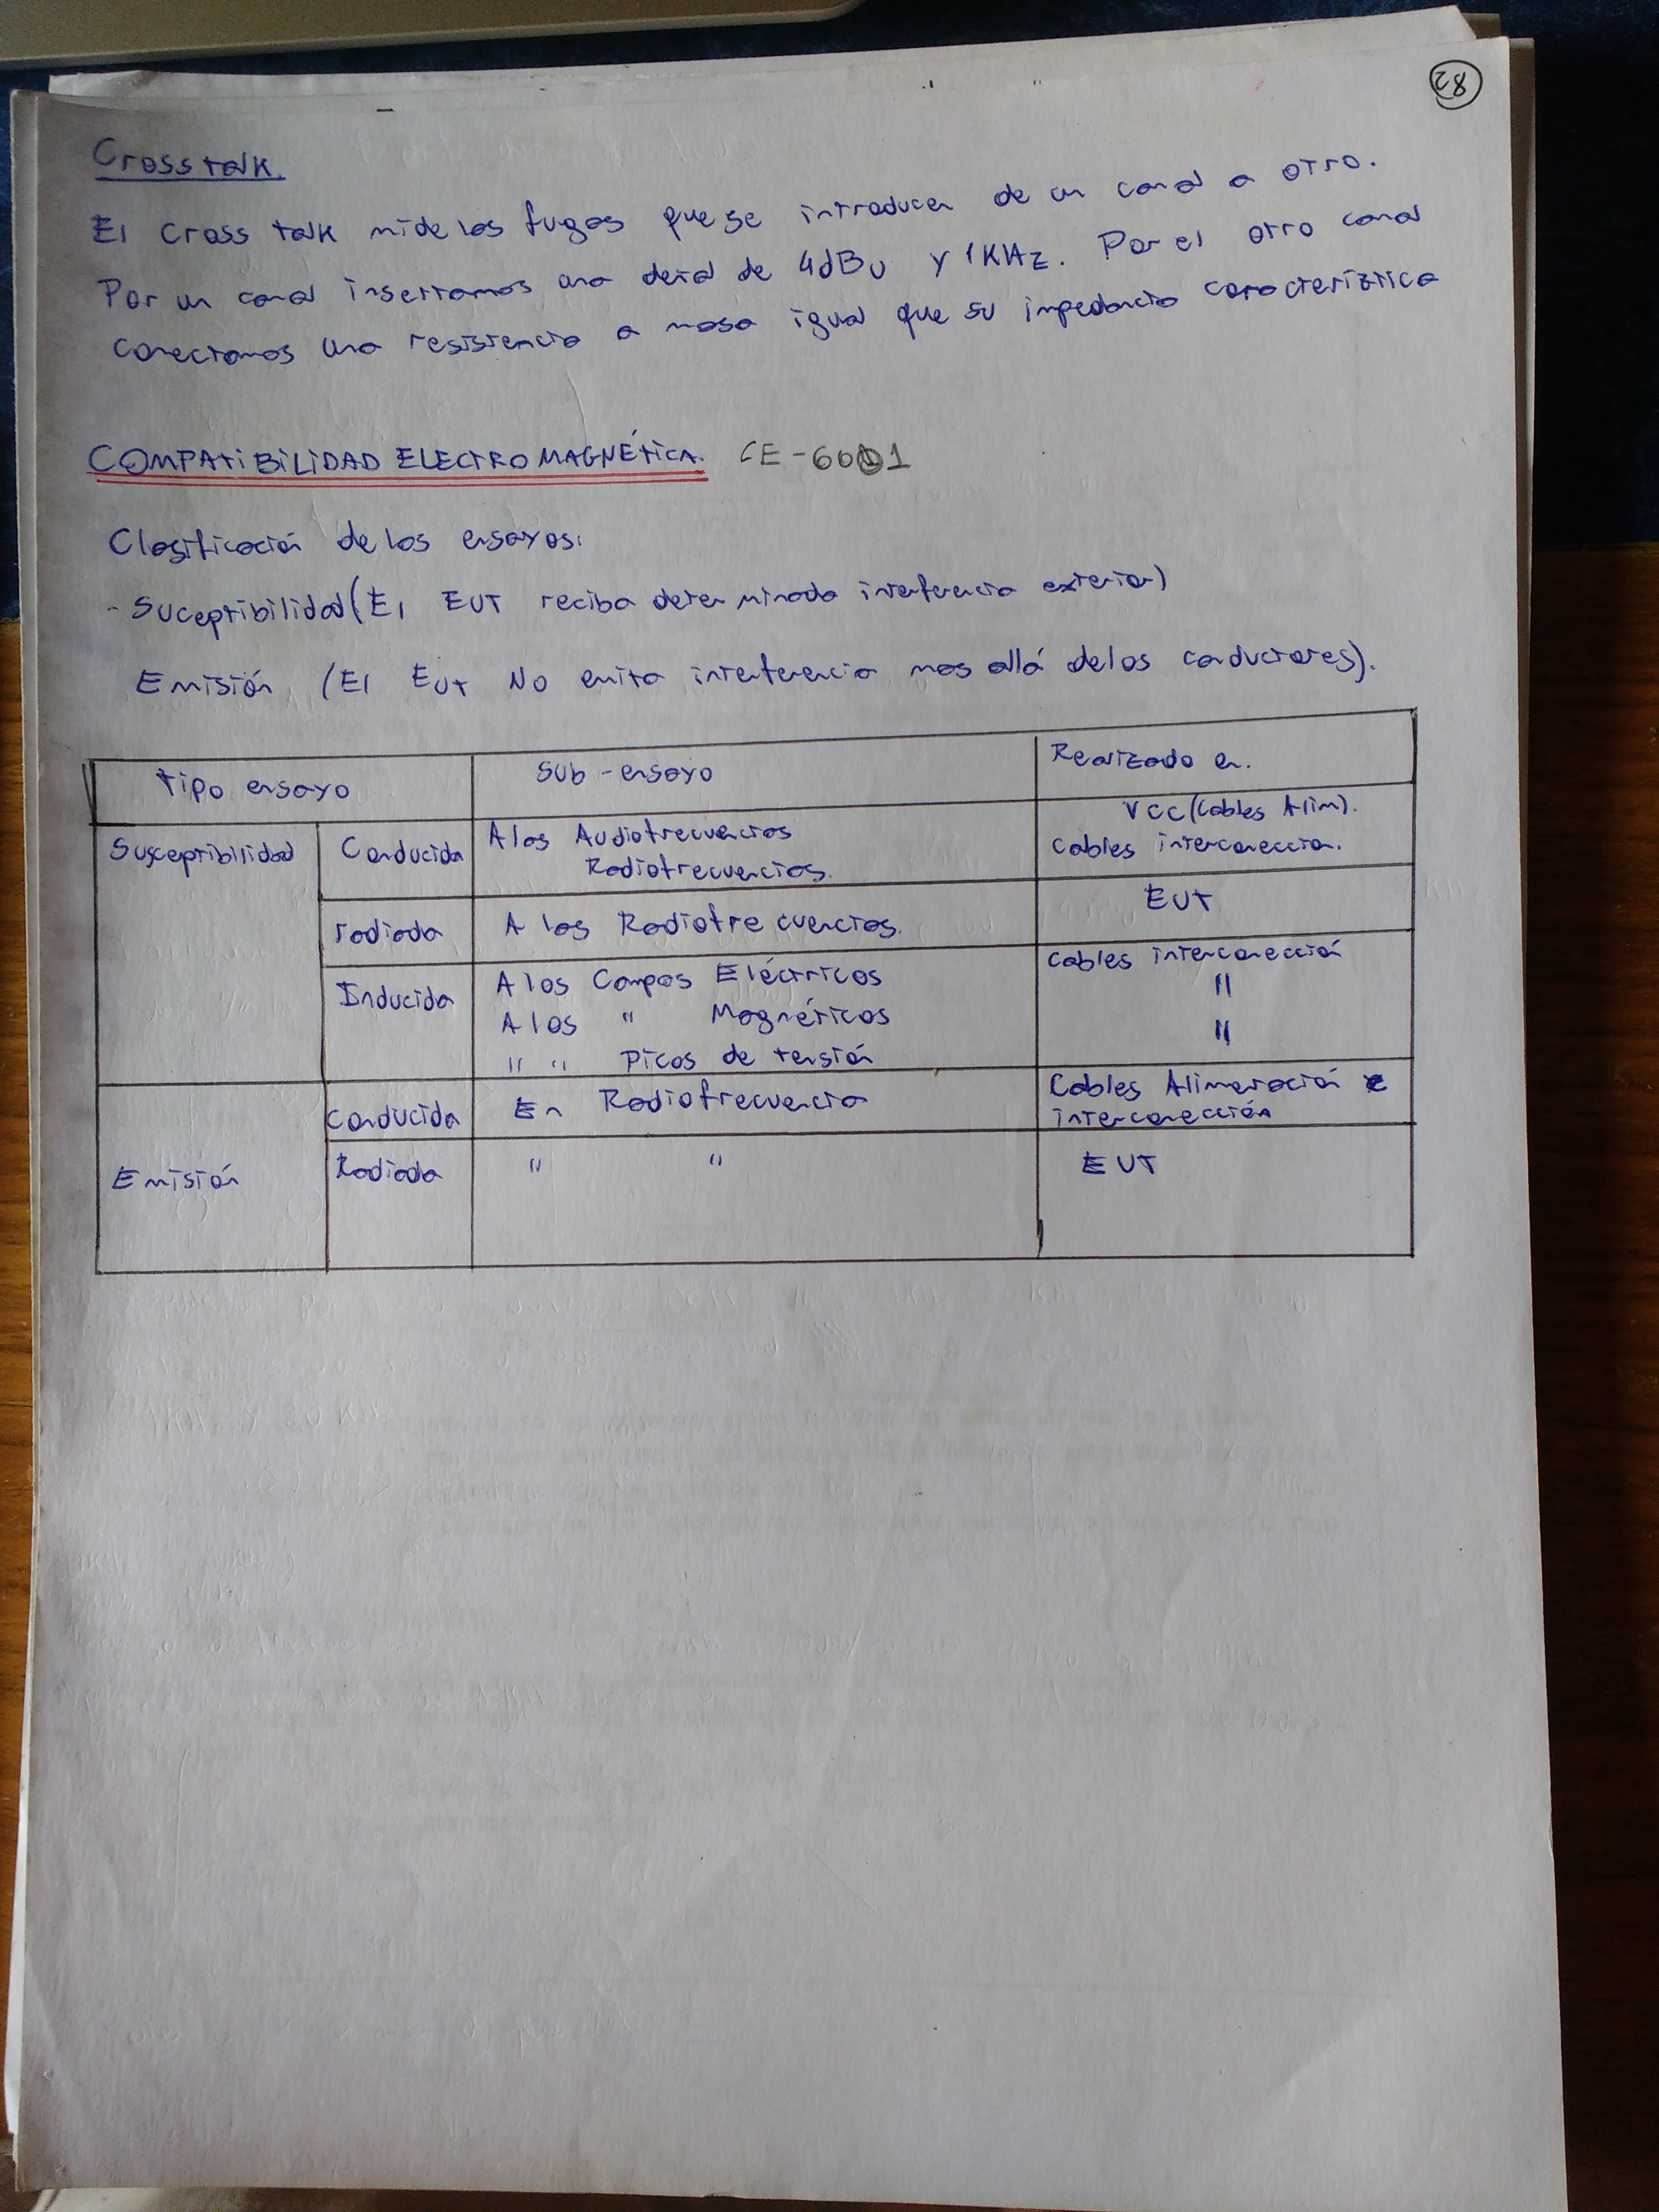 28
Cross talk.
El Cross talk mide las fugas que se introducen de un canal a otro.
Por un canal insertamos una señal de 4dBu y 1KHz. Por el otro canal
conectamos una resistencia a masa igual que su impedancia caracteríztica
COMPATIBILIDAD ELECTROMAGNÉTICA. CE-6001
Clasificación de los ensayos:
- Suceptibilidad (El EUT reciba determinada interferencia exterior)
Emisión (El EUT No emita interferencia mas allá de los conductores).
Tipo ensayo Sub-ensayo Realizado en.
Susceptibilidad Conducida A las Audiofrecuencias VCC (Cables Alim).
Radiofrecuencias. Cables interconeccion.
radiada A las Radiofrecuencias. EUT
Inducida A los Campos Eléctricos Cables interconección
A los " Magnéticos "
" " Picos de tensión "
Conducida En Radiofrecuencia Cables Alimentación e
interconección
Emisión Radiada " " EUT